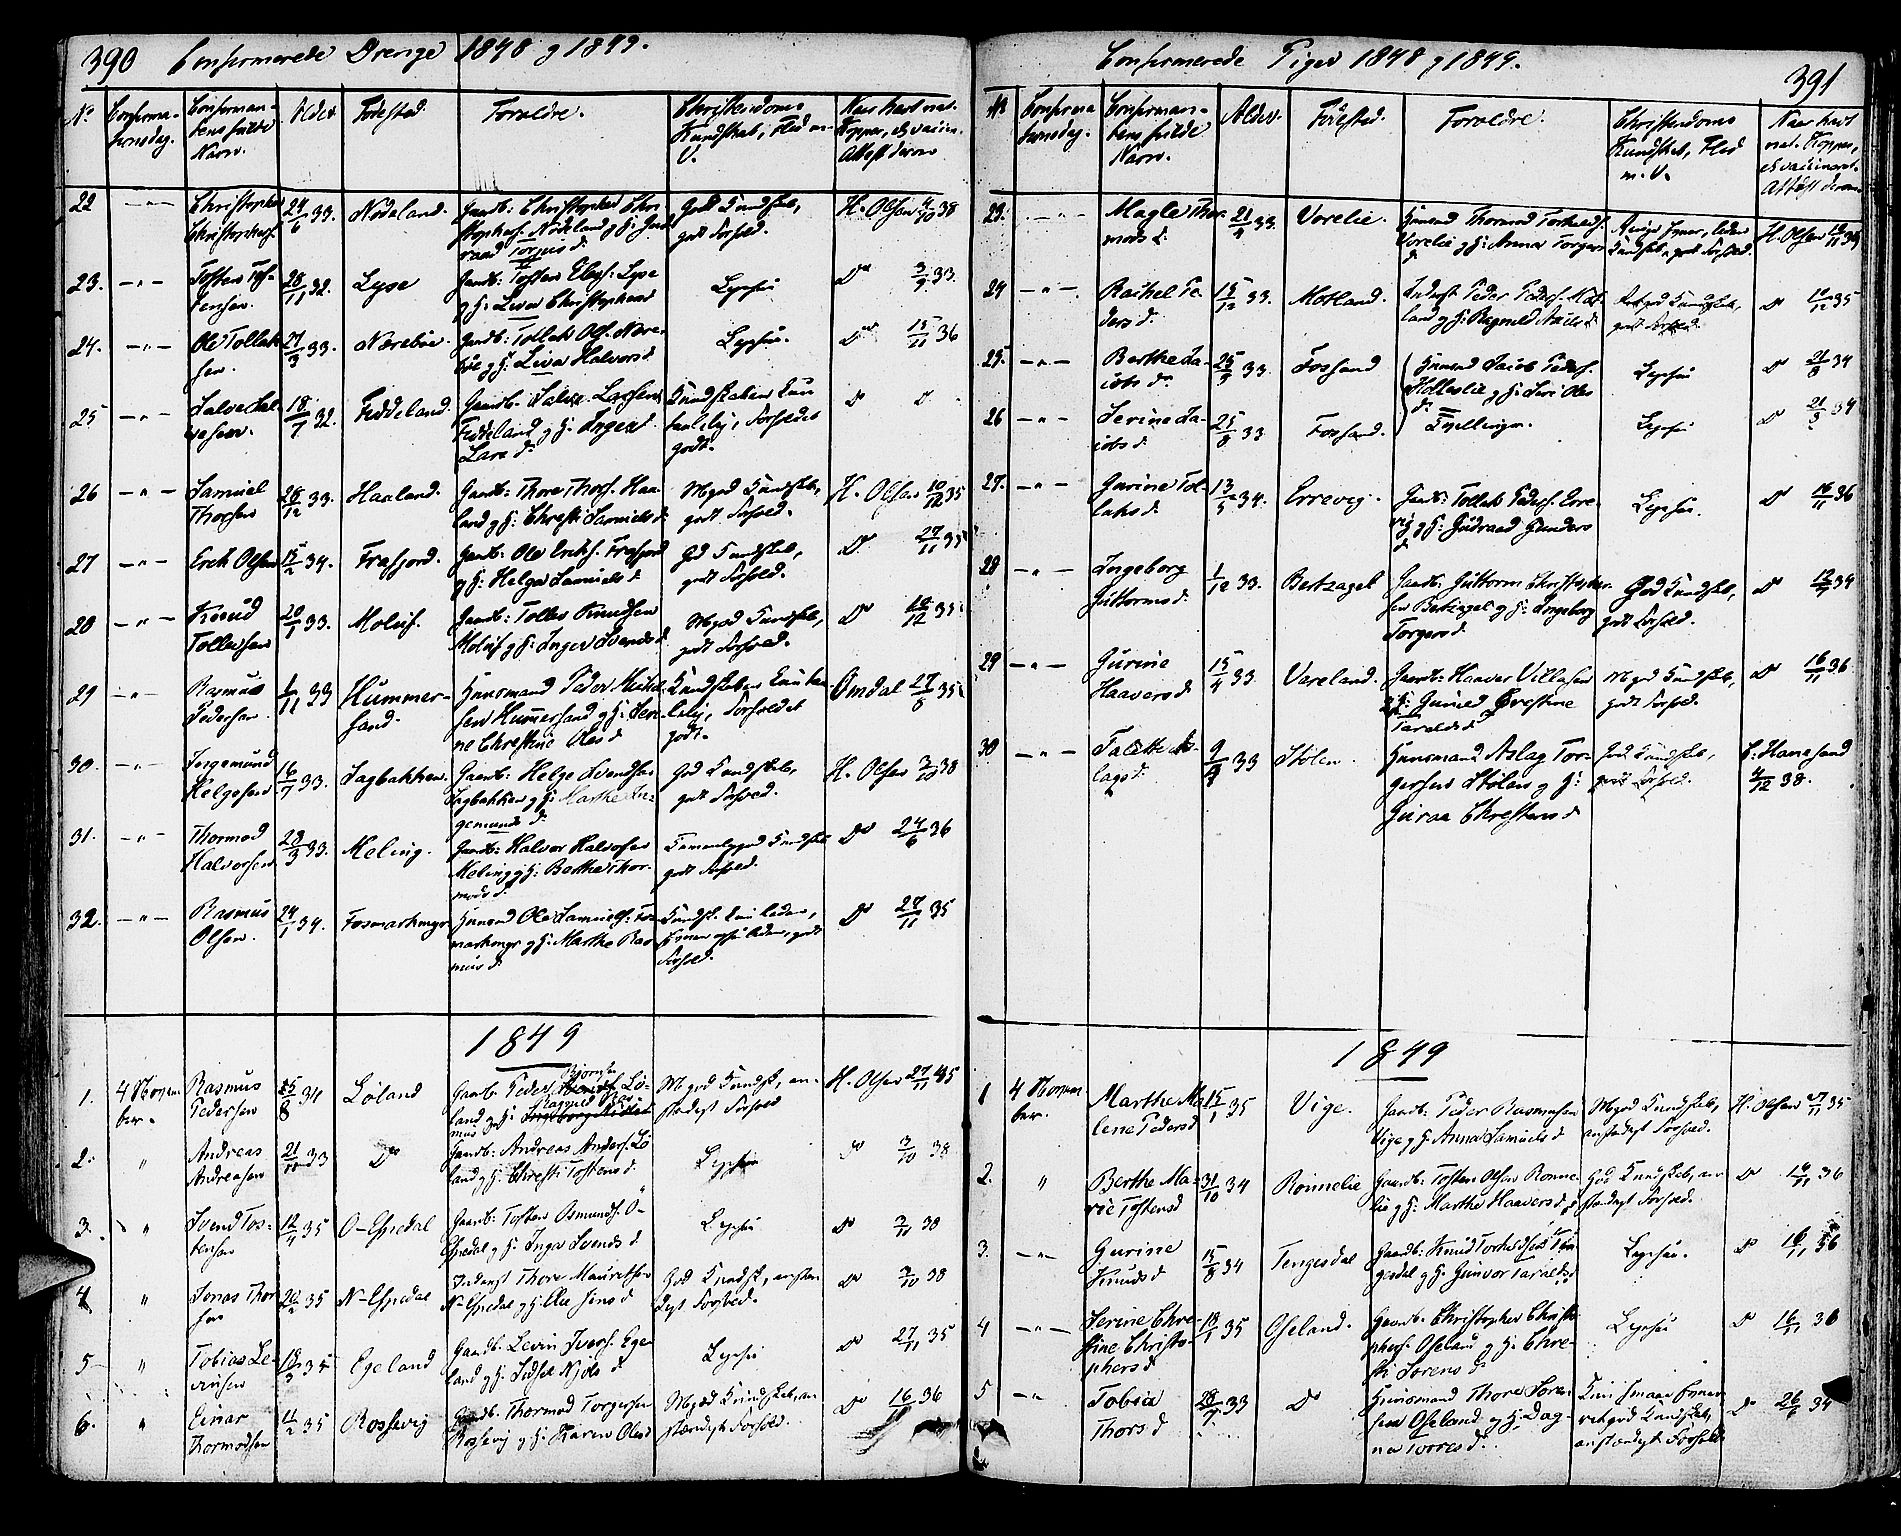 390 Confirmerede Drenge 1848 g 1849.
No. Confirma-tionsdag. Confirman-dens fulde Navn. Alder Födested. Forældre. Christendoms Kundskab, Flid m. V. Naar havt nat. Kopper, el. vaccin. Attest derom
22 -"- Christopher Christophers. 24/6 33. Nödeland. Gaardb: Christopher Chri-
stophers. Nödeland g H: Gud-
raad Torgius d. God Kundskab, godt Forhold. H. Olsen 4/10 38
23. -"- Tosten To-
stensen. 28/11 32. Lyse Gaardb: Tosten Elefs. Lyse
g H: Liva Christophers d Ligesaa Do 3/9 33.
24. -"- Ole Tollak-
sen. 27/3 33. Nöreböe. Gaardb: Tollak Ols. Nöre-
böe g H: Liva Halvors d. Ligesaa. Do 15/11 36
25 -"- Salve Sal-
vesen. 18/7 32. Fiddeland. Gaardb. Salve Larsen
Fiddeland g H: Inger
Lars d. Kundskaben kun
taalelig, Forholdet
godt. Do
26 -"- Samuel
Thorsen 28/12 33. Haaland. Gaardb: Thore Thors. Haa-
land g H: Christi Samuels d. Mgod Kundskab,
godt Forhold. H. Olsen 10/12 35
27 -"- Erik Olsen 15/2 34. Frafjord. Gaardb: Ole Eriks. Frafjord
g H: Helga Samuels d God Kundskab,
godt Forhold. Do 27/11 35
28 -"- Knud
Tollessen 20/1 33. Molaus. Gaardb: Tolles Knudsen
g H: Inger Svends d Mgod Kundskab,
godt Forhold. Do 10/12 35
29 -"- Rasmus
Pedersen. 1/11 33 Hummer-
sand. Huusmand Peder Mikkel-
sen Hummersand g H: Seri-
ne Christine Oles d Kundskaben kun taa-
lelig, Forholdet
godt. Omdal 27/8 35
30. -"- Ingemund
Helgesen 16/7 33. Sagbakken. Gaardb: Helge Svendsen
Sagbakken g H: Marthe In-
gemunds d. God Kundskab,
godt Forhold. H. Olsen 3/10 38
31. -"- Thormod
Halvorsen 29/3 33. Meling. Gaardb: Halvor Halvorsen
Meling g H: Berthe Thor-
mods d. Temmelig god Kundskab
godt Forhold. Do 24/6 36
32. -"- Rasmus
Olsen. 24/1 34. Fosmarkmyr Huusmd Ole Samuels. Fos-
markmyr g H: Marthe Ras-
mus d. Kundsk. kun liden,
godt
Forhold. Do 27/11 35
1849
1. 4 Novem-
ber. Rasmus
Pedersen 25/8 34 Löland Gaardb: Peder Björnsen Lö-
land g H: Ragnild Ras-
mus d Mgod Kundsk., an-
stændigt Forhold H. Olsen 27/11 45
2. " Andreas
Andreasen 21/10 33 Do Gaardb: Andreas Anders. Lö-
land g H: Christi Tostens d. Ligesaa Do 3/10 38
3. " Svend Tos-
tensen 12/4 35 O-Espedal Gaardb: Tosten Osmunds. O-
Espedal g H: Inga Svends d. Ligesaa Do 2/11 38
4 " Jonas Thor-
sen 20/2 35 N-Espedal Inderst Thore Mauritsen
N-Espedal g H: God Kundsk., anstæn-
digt Forhold. Do 3/10 38
5 " Tobias Le-
vinsen 18/3 35 Egeland Gaardb: Levin Ivers. Ege-
land g H: Sidsel Njels d. Ligesaa Do 27/11 35
6. " Einar
Thormodsen 11/2 35 Rossavig Gaardb. Thormod Torgersen
Rossavig g H: Karen Oles d Mgod Kundskab, an-
stændigt Forhold. Do 16/11 36
Confirmerede Piger 1848 g 1849. 391
No Confirma-
tionsdag. Confirman-
dens fulde
Navn. Alder. Födested. Forældre. Christendoms
Kundskab, Flid
m. V. Naar havt
nat. Kopper,
el. vaccineret.
Attest derom
23. -"- Magle Thor-
mods d. 21/4 33. Vorelie. Huusmd Thormod Torkelds.
Vorelie g H: Anna Torgers
d Ringe Evner, liden
Kundskab, godt Forhold. H. Olsen
24 -"- Rachel Pe-
ders d. 15/12 33. Motland. Inderst Peder Peders. Mot-
land g H: Ragnild Asiels d. godt Forhold. Do 10/12 35
25. -"- Berthe Ja-
cobs d. 25/8 33. Fossand Huusmd Jacob Peders.
Holleslie g H: Siri Oles
d. Ligesaa Do 21/8 34
26 -"- Serine Ja-
cobs d. 25/8 33 Fossand. Tvillinger. Ligesaa Do 21/8 34
27. -"- Gurine Tol-
laks d. 13/5 34. Errevig. Gaardb: Tollak Peders. Erre-
vig g H: Gudraad Gunders
d. Ligesaa. Do 16/11 36
28 -"- Ingeborg
Guttorms d. 1/12 33. Bertzagel Gaardb: Guttorm Christopher-
sen Bertzagel g H: Ingeborg
Torgers d. God Kundskab,
godt Forhold. Do
29 -"- Gurine
Haavers d. 15/4 33 Vareland. Gaardb: Haaver Villasen
g H: Gunild Chrestine
Taralds d. Mgod Kundskab,
godt Forhold. Do 16/11 36
30 -"- Talette As-
lags d. 9/4 33 Stölen. Huusmand Aslag Tor-
gersen Stölen g H:
Guraa Christens d God Kundskab,
godt Forhold. C. Hanasand
4/12 38.
1849
1 4 Novem-
ber. Marthe Ma-
lene Peders d 15/1 35 Vige. Gaardb: Peder Rasmussen
Vige g H: Anna Samuels d Mgod Kundskab,
anstændigt Forhold. H. Olsen 27/11 35
2. " Berthe Ma-
rie Tostens d 31/10 34 Rönnelie Gaardb: Tosten Olsen Rönne-
lie g H: Marthe Haavers d God Kundskab, an-
stændigt Forhold. Do 16/11 36
3. -"- Gurine
Knuds d 15/8 34 Tengesdal Gaardb: Knud Torkeldsen Ten-
gesdal g H. Gunvor Taralds d Ligesaa. Do 16/11 36
4 -"- Serine Chre-
stine Christo-
phers d 18/1 35 Oseland. Gaardb: Christopher Christo-
phers. Oseland g H: Chre-
sti Sörens d. Ligesaa Do 16/11 36
5 -"- Tobia
Thors d 28/7 33 Do Huusmand Thore Sören-
sen Oseland g H: Dag-
na Torres d. Kun smaa Evner,
ret god Kundskab,
anstændigt Forhold Do 26/6 34